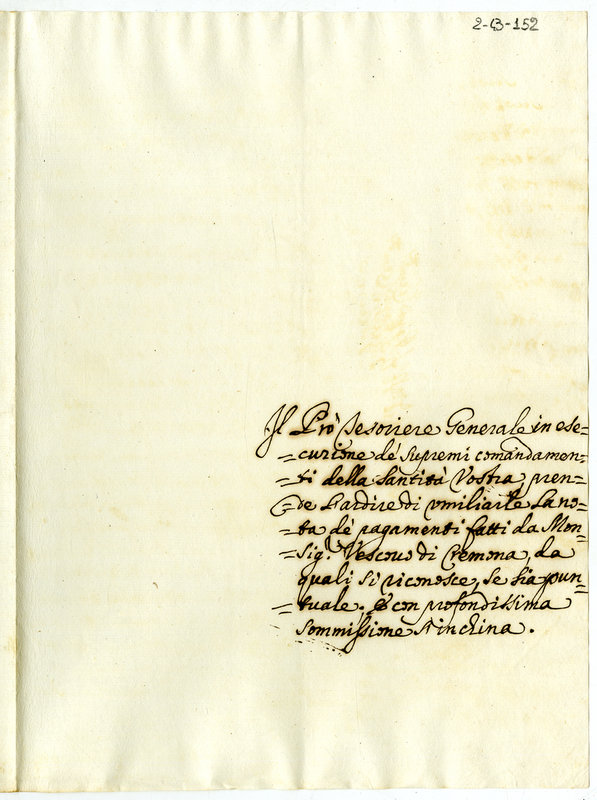 2-43-152
Il Prò Tesoriere Generale in ese=
=curione de' supremi comandamen=
=ti della Santità Vostra, pren=
=de l'ardire di umiliarle la no=
=ta de' pagamenti fatti da Mon=
=sig.r Vescovo di Cremona, da
quali si riconosce, se sia pun=
=tuale. E con profondissima
sommissione s'inchina.